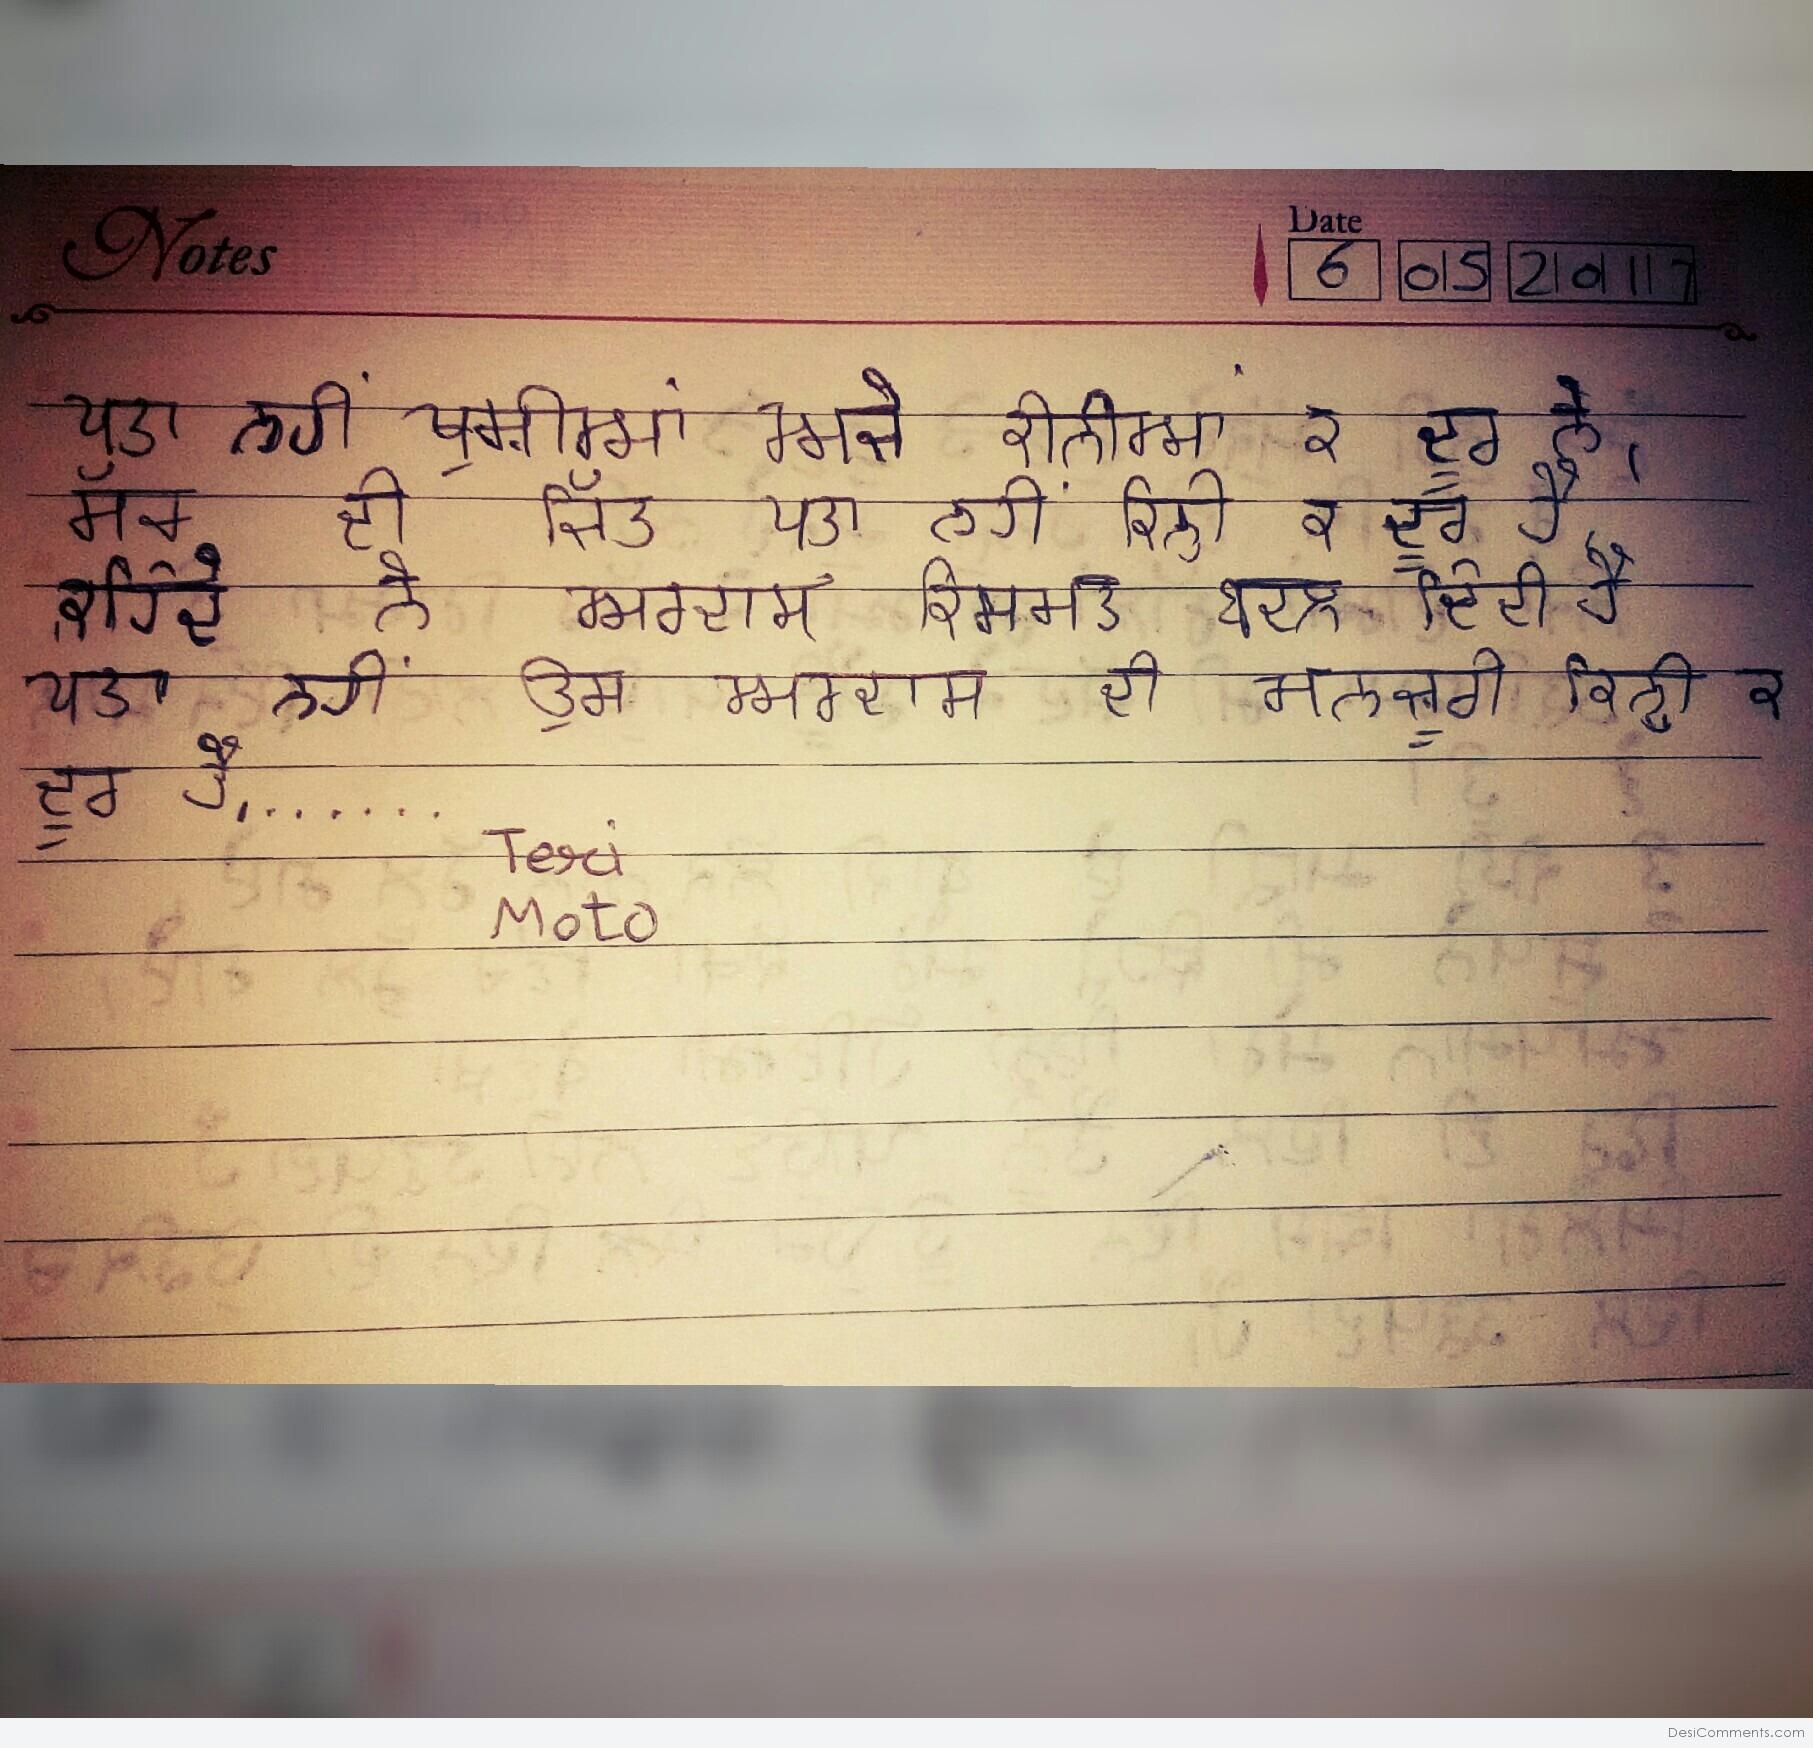 Notes
Date
6 05 2017
ਪਤਾ ਨਹੀਂ ਖੁਸ਼ੀਆਂ ਅਜੇ ਕੀਨੀਆਂ ਕ ਦੂਰ ਨੇ,
ਸੱਚ ਦੀ ਜਿੱਤ ਪਤਾ ਨਹੀਂ ਕਿਨੀ ਕ ਦੂਰ ਹੈ,
ਕਹਿੰਦੇ ਨੇ ਅਰਦਾਸ ਕਿਸਮਤ ਬਦਲ ਦਿੰਦੀ ਹੈ
ਪਤਾ ਨਹੀਂ ਉਸ ਅਰਦਾਸ ਦੀ ਮਨਜ਼ੂਰੀ ਕਿਨੀ ਕ
ਦੂਰ ਹੈ,.......
Teri
Moto
DesiComments.com